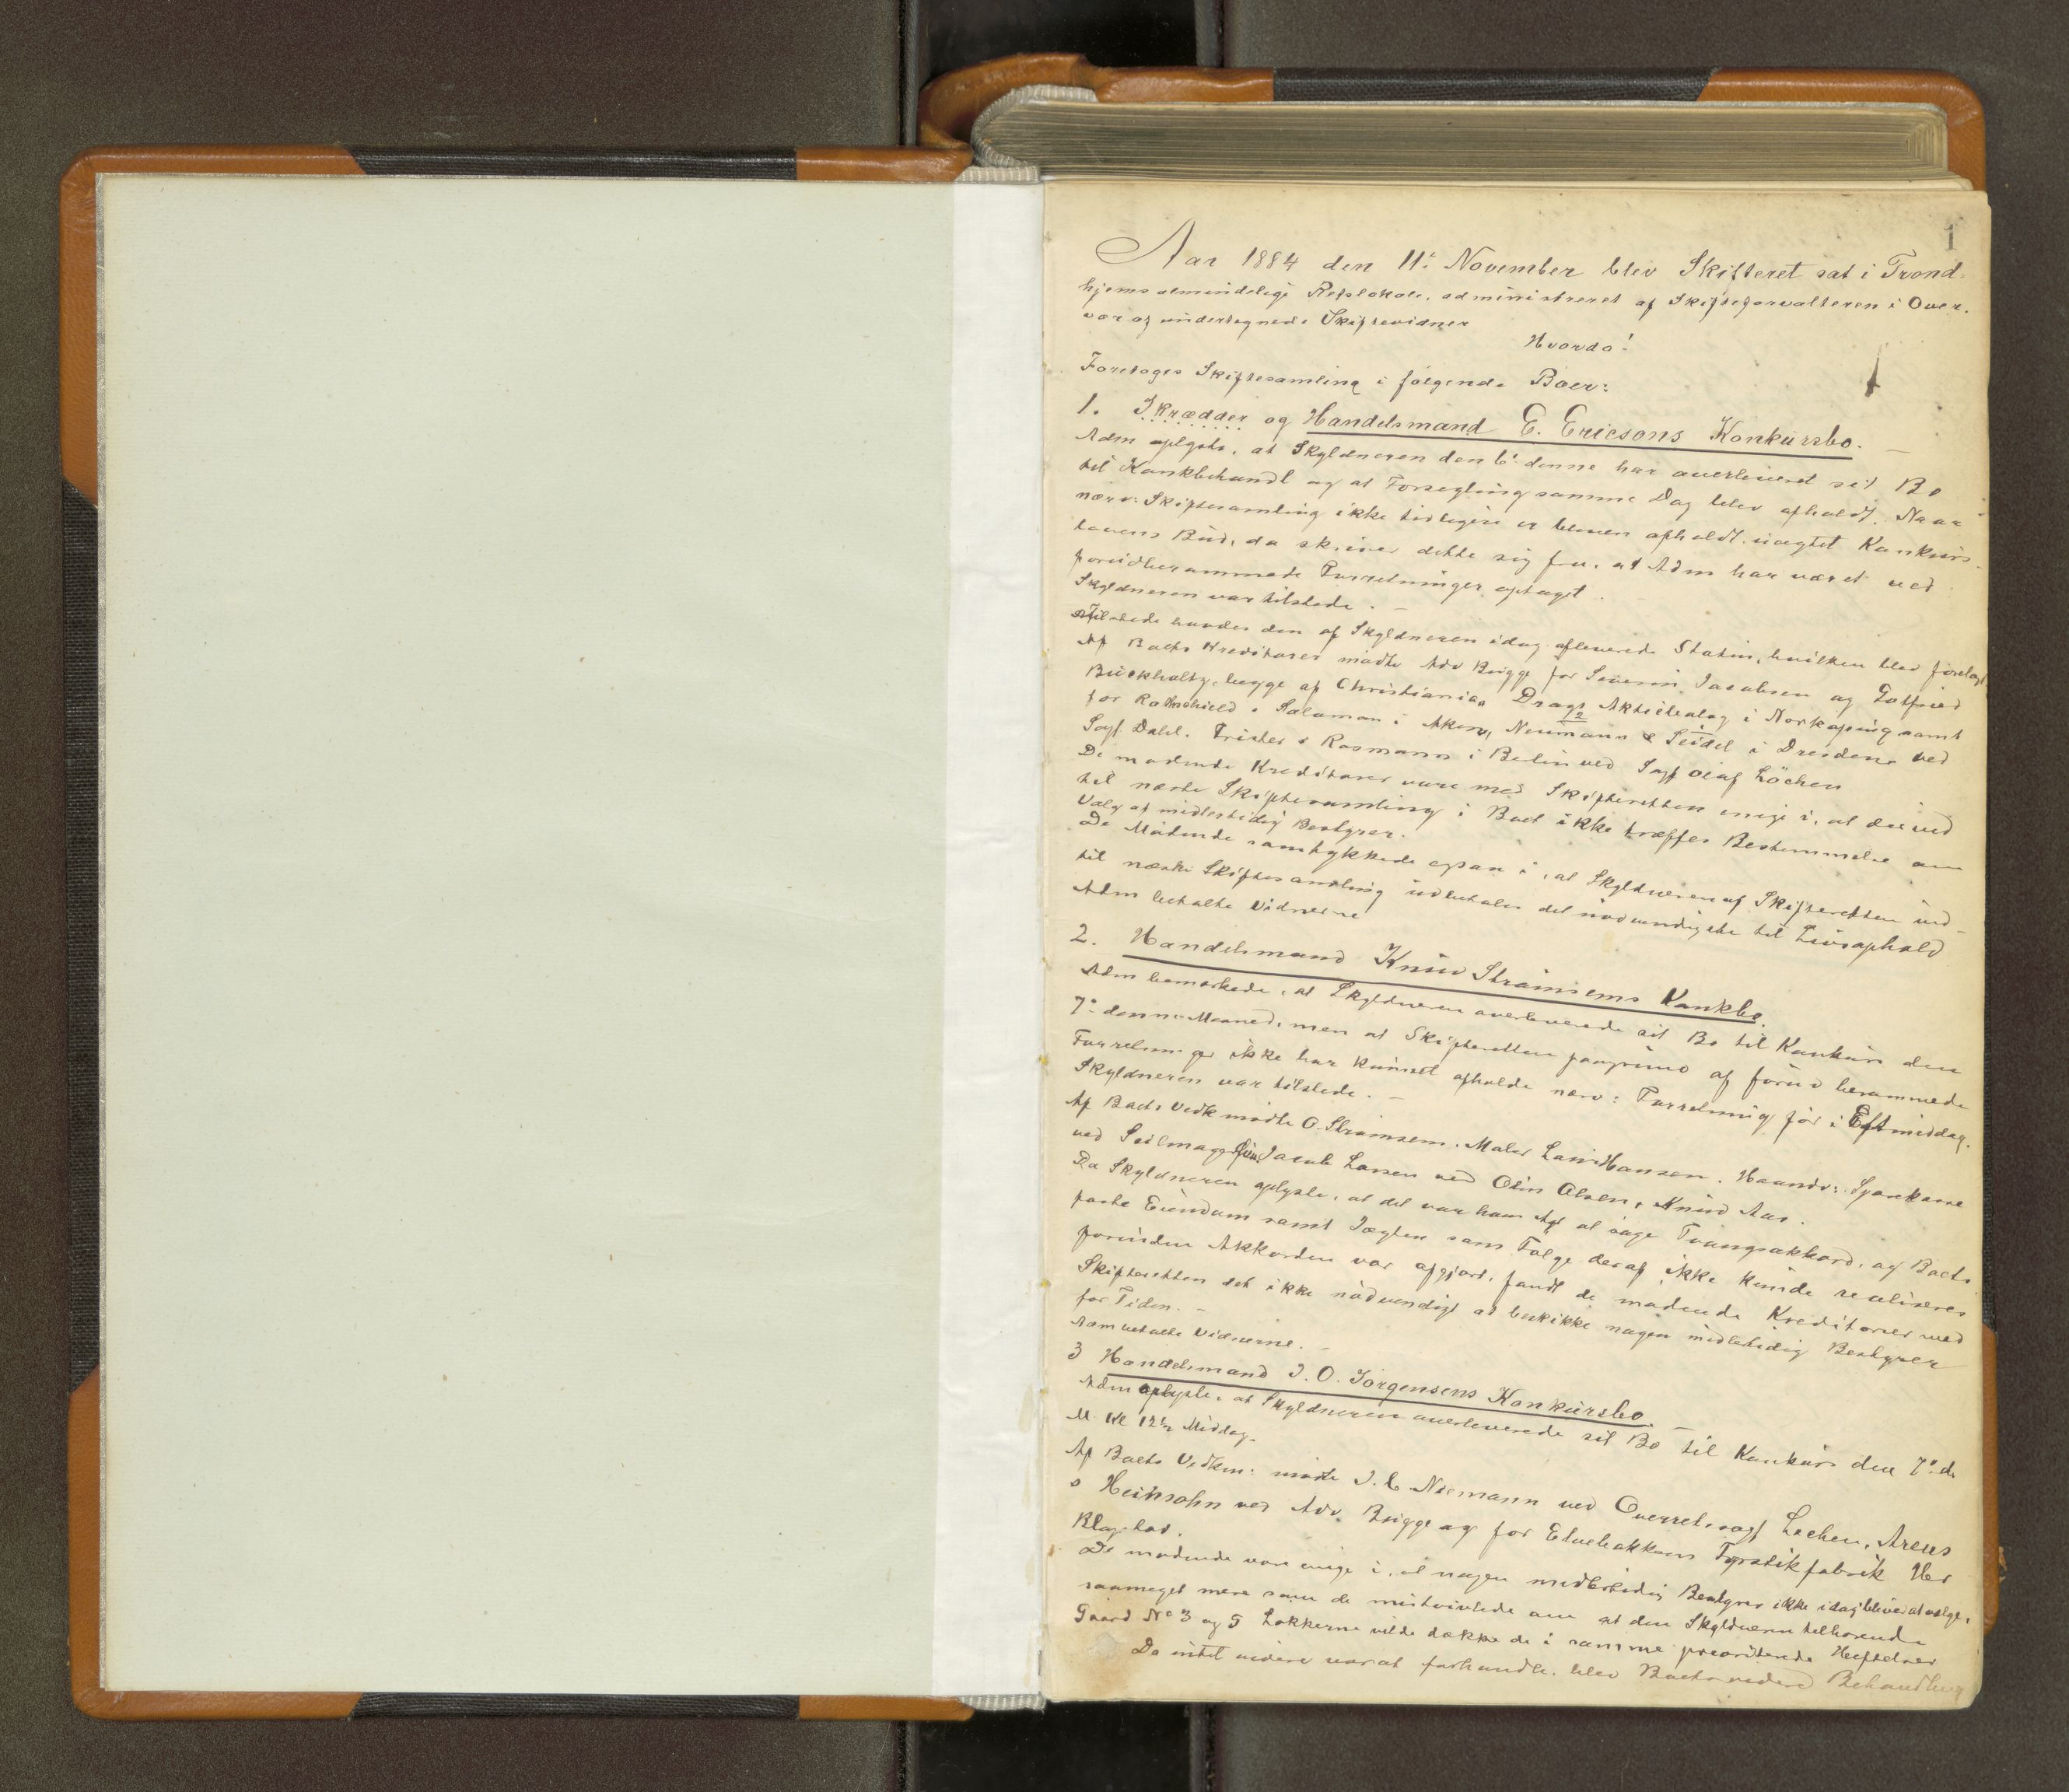 1
Aar 1884 den 11te November blev Skifteret sat i Trond-
hjems almindelige Retslokale, administreret af Skifteforvalteren i Over-
vær af undertegnede Skiftevidner
Hvorda!
Foretoges Skiftesamling i følgende Boer:
1. Skrædder og Handelsmand E. Ericsons Konkursbo.
Adm oplyste, at Skyldneren den 6te denne har overleveret sit Bo
til Konkbehandl og at Forsegling samme Dag blev afholdt. Naar
nærv: Skiftesamling ikke tidligere er bleven afholdt uagtet Konkurs-
lovens Bud, da skriver dette sig fra, at Adm har været ved
forudberammede Forretninger optaget.
Skyldneren var tilstede. –
Tilstede havdes den af Skyldneren idag afleverede Status, hvilken blev forelagt
Af Boets Kreditorer mødte Adv Brigge for Severin Jacobsen og Gotfried
Buckholtz, begge af Christiania, Drags Aktiebolag i Norkøping samt
for Rothschield & Salomon i Akers, Neumann & Seidel i Dresden ved
Sagf. Dahl. Frister & Rosmann i Berlin ved Sagf Olaf Löchen
De mødende Kreditorer vare med Skifteretten enige i, at der ved
til næste Skiftesamling i Boet ikke træffes Bestemmelse om
Valg af midlertidig Bestyrer.
De Mødende samtykkede ogsaa i, at Skyldneren af Skifteretten ind-
til næste Skiftesamling udbetales det nødvendigste til Livsophold
Adm betalte Vidnerne
2. Handelsmand Knud Strømsems Konkbo.
Adm bemærkede, at Skyldneren overleverede sit Bo til Konkurs den
7de denne Maaned, men at Skifteretten paagrund af forud berammede
Forretninger ikke har kunnet afholde nærv: Forretning før i Eftmiddag.
Skyldneren var tilstede. –
Af Boets Vedk mødte O. Strømsem, Maler Hansen, Haandv: Sparekasse
ved Seilmager Jacob Larsen ved Odin Olsen, Knud Aas.
Da Skyldneren oplyste, at det var ham Agt at søge Tvangsakkord, og Boets
faste Eiendom samt Jægten som Følge deraf ikke kunde realiseres
forinden Akkorden var afgjort, fandt de mødende Kreditorer med
Skifteretten det ikke nødvendigt at beskikke nogen midlertidig Bestyrer
for Tiden. –
Adm betalte Vidnerne. –
3 Handelsmand J. O. Jørgensens Konkursbo. –
Adm oplyste, at Skyldneren overleverede sit Bo til Konkurs den 7de ds
M. Kl 12½ Middag.
Af Boets Vedkm: mødte J. C. Niemann ved Overretssagf Løchen, Arens
& Heinsohn ved Adv. Brigge og for Elvebakkens Fyrstikfabrik Hr
Klagstad.
De mødende vare enige i, at nogen midlertidig Bestyrer ikke idag bliver at vælge,
saameget mere som de mistvivlede om at den Skyldneren tilhørende
Gaard No 3 og 5 Lokkerne vilde dække de i samme prioriterede Heftelser
Da intet videre var at forhandle, blev Boets videre Behandling